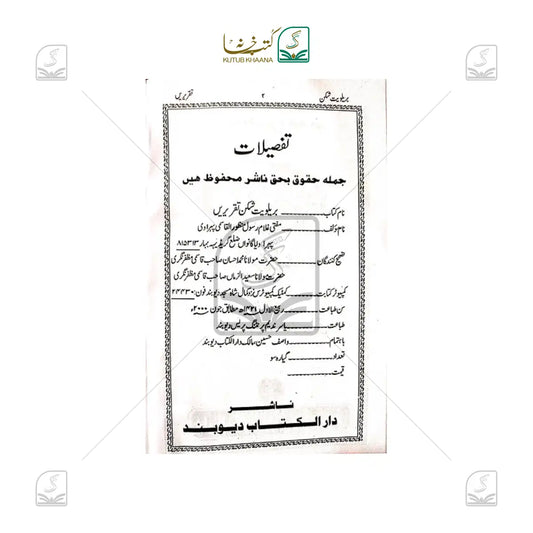 کتب خانہ
KUTUB KHAANA
بریلویت شکن ۲ تقریریں
تفصیلات
جملہ حقوق بحق ناشر محفوظ ھیں
نام کتاب بریلویت شکن تقریریں
نام مؤلف مفتی غلام رسول منظور القاسمی پہراوی
پہرا وایا گانواں ضلع گریڈیہہ بہار ۸۱۵۳۱۳
تصحیح کنندگان حضرت مولانا محمد احسان صاحب قاسمی مظفر نگری
حضرت مولانا سعید الزماں صاحب قاسمی مظفر نگری
کمپیوٹر کتابت کمپیوٹرس نزد کمال شاہ مسجد دیوبند فون: ۲۴۴۳۰
سن طباعت ربیع الاول ۱۴۲۱ھ مطابق جون ۲۰۰۰ء
طباعت یاسر ندیم پرنٹنگ پریس دیوبند
باہتمام واصف حسین مالک دار الکتاب دیوبند
تعداد گیارہ سو
قیمت
ناشر
دار الکتاب دیوبند